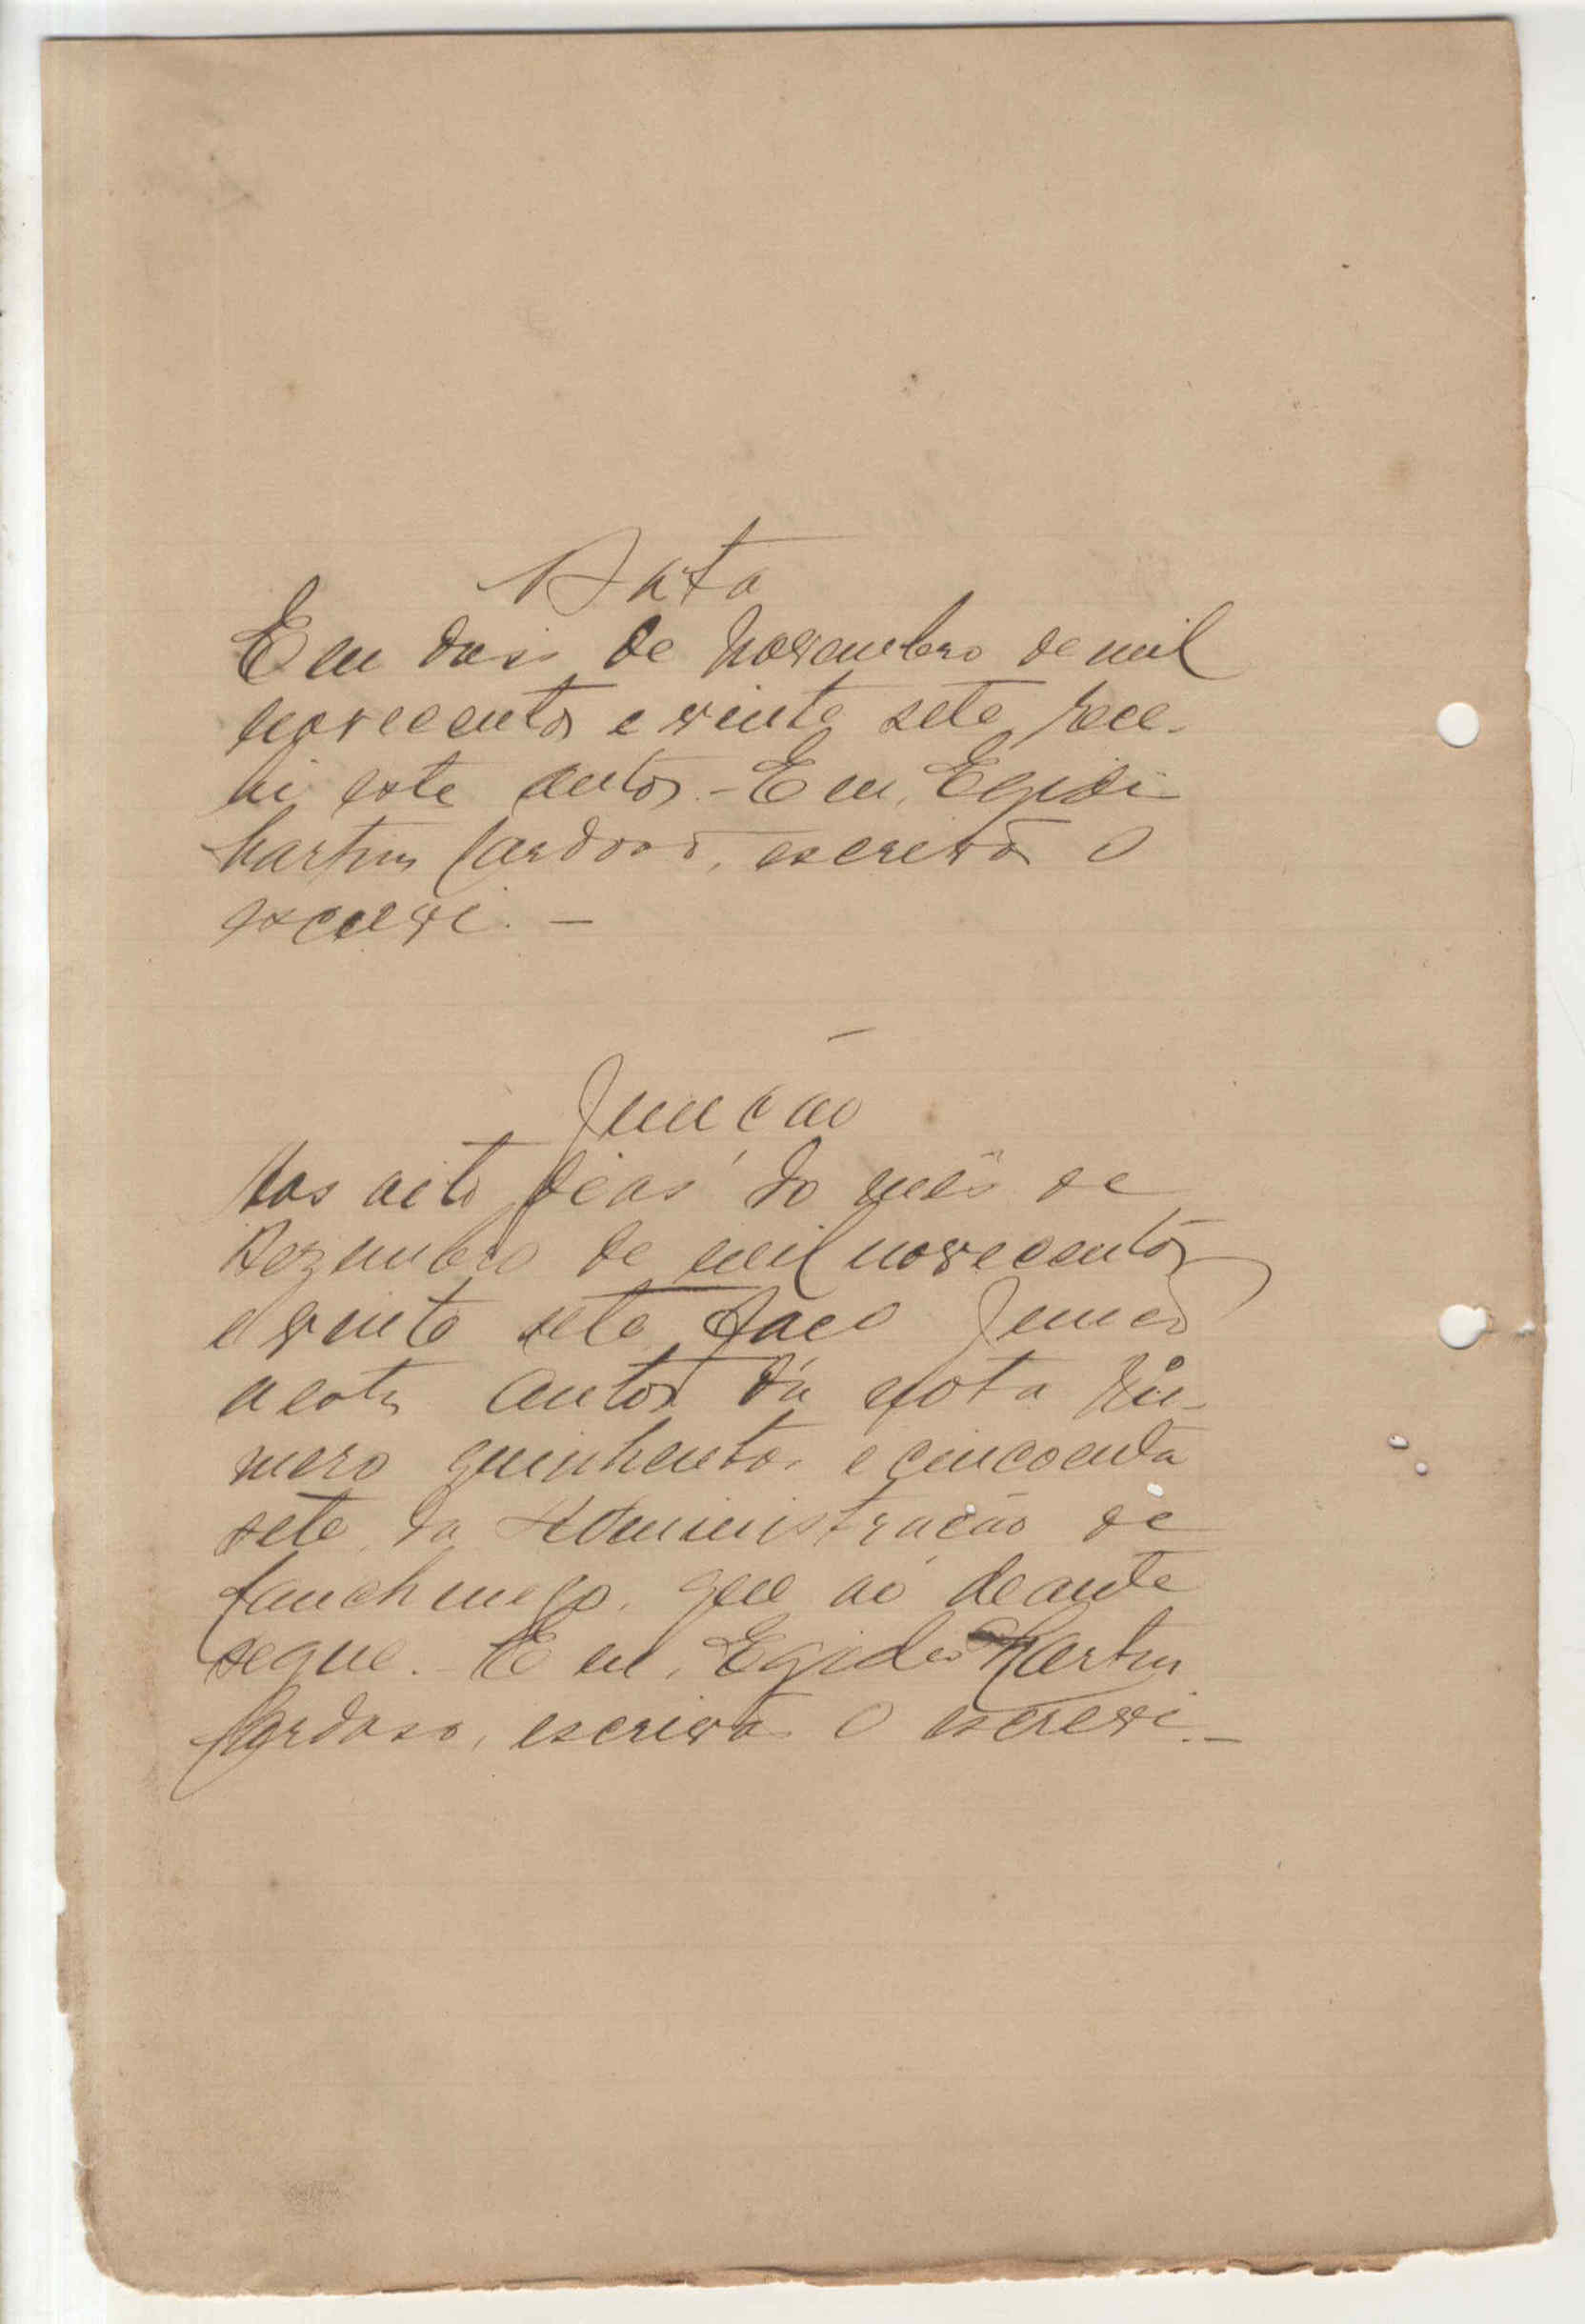 Data
Em dois de Novembro de mil
novecentos e vinte sete rece-
bi este autos. - E eu, Egidio
Martins Cardoso, escrivão o
escrevi. -
Junção
Aos oito dias do mês de
Dezembro de mil novecentos
e vinte sete faço junção
a estes autos da nota Nú-
mero quinhentos e cincoenta
sete da Administração de
Canchungo, que ao deante
segue. - E eu, Egidio Martins
Cardoso, escrivão o escrevi. -